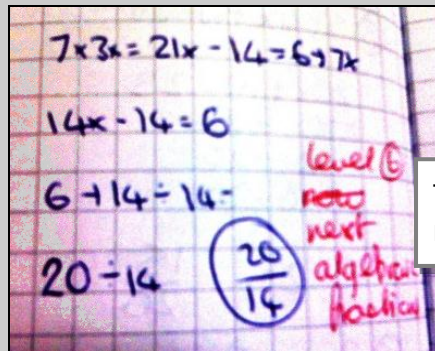 7x3x = 21x - 14 = 6 + 7x
14x - 14 = 6
6 + 14 ÷ 14 =
20 ÷ 14
20
14
level 6
next
algebraic
fraction